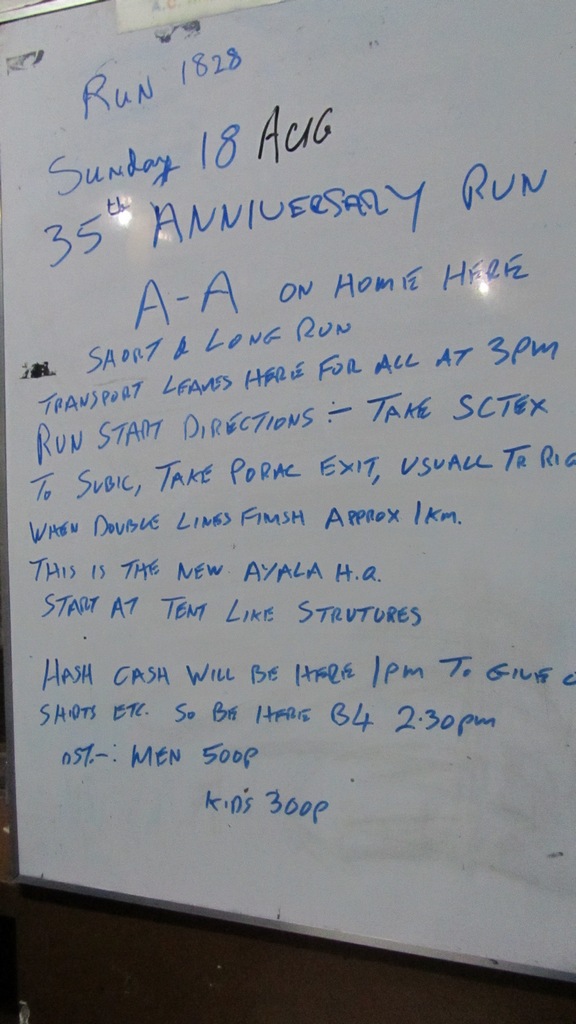 Run 1828
Sunday 18 AUG
35th ANNIVERSARY RUN
A-A ON HOME HERE
SHORT & LONG RUN
TRANSPORT LEAVES HERE FOR ALL AT 3pm
RUN START DIRECTIONS :- TAKE SCTEX
TO SUBIC, TAKE PORAC EXIT, USUALL TR RIG
WHEN DOUBLE LINES FINISH APPROX 1KM.
THIS IS THE NEW AYALA H.Q.
START AT TENT LIKE STRUTURES
HASH CASH WILL BE HERE 1pm TO GIVE
SHIRTS ETC. SO BE HERE B4 2.30pm
OST.-: MEN 500P
KID'S 300P